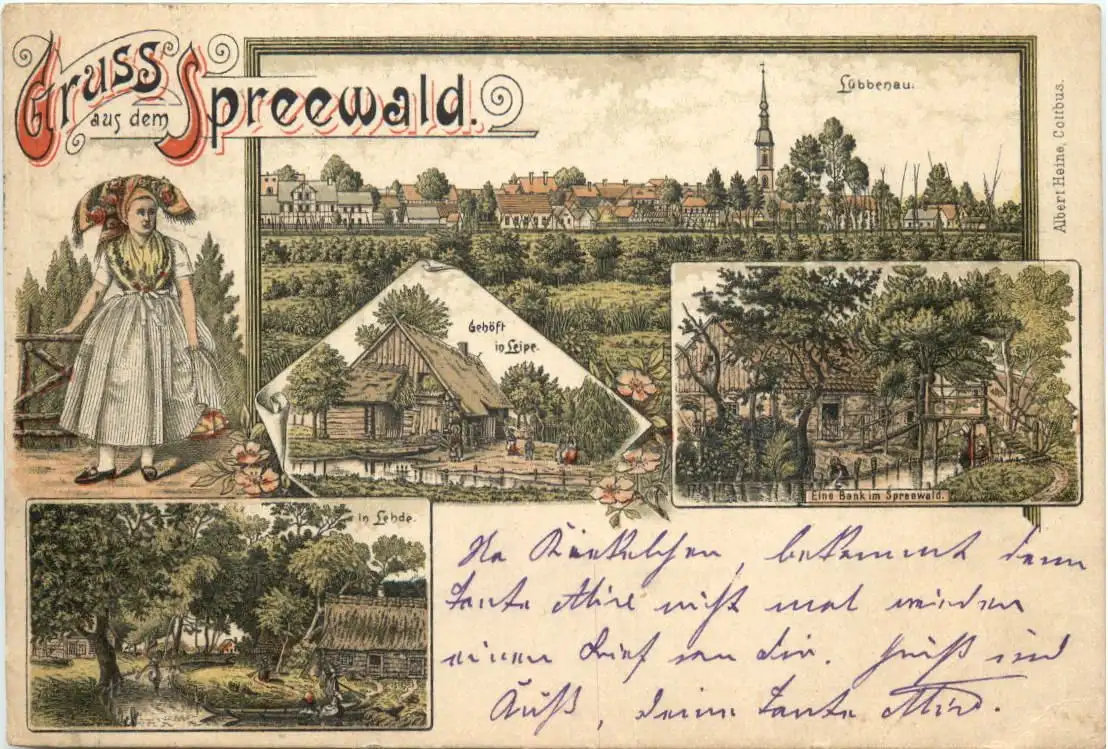 Gruss
aus dem
Spreewald.
Lübbenau.
Albert Heine, Cottbus.
Gehöft
in Leipe.
Eine Bank im Spreewald.
In Lehde.
Na, bekommt denn
Tante Mirl nicht mal wieder
einen Brief von Dir. Gruß und
Kuß, deine Tante